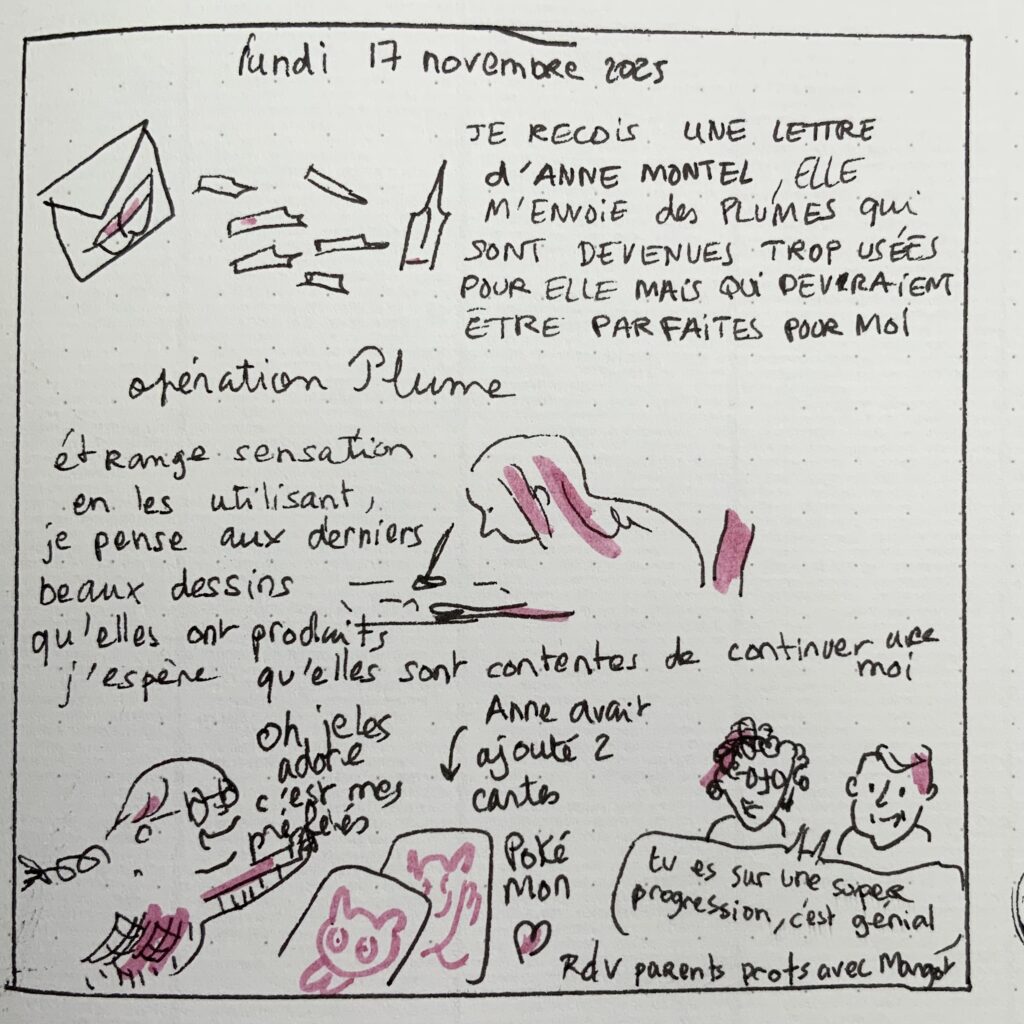 lundi 17 novembre 2025
JE RECOIS UNE LETTRE
d'ANNE MONTEL, ELLE
M'ENVOIE des PLUMES qui
SONT DEVENUES TROP USÉES
POUR ELLE MAIS QUI DEVRAIENT
ÊTRE PARFAITES POUR MOI
opération Plume
étrange sensation
en les utilisant,
je pense aux derniers
beaux dessins
qu'elles ont produits
j'espère qu'elles sont contentes de continuer avec
moi
oh, je les
adore
c'est mes
préférés
Anne avait
ajouté 2
cartes
Poké
mon
tu es sur une super
progression, c'est génial
Rdv parents profs avec Margot